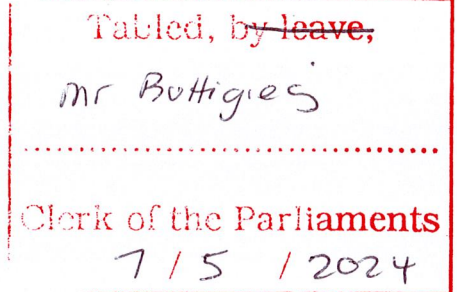 Tabled, by leave,
Mr Buttigieg
Clerk of the Parliaments
7 / 5 / 2024